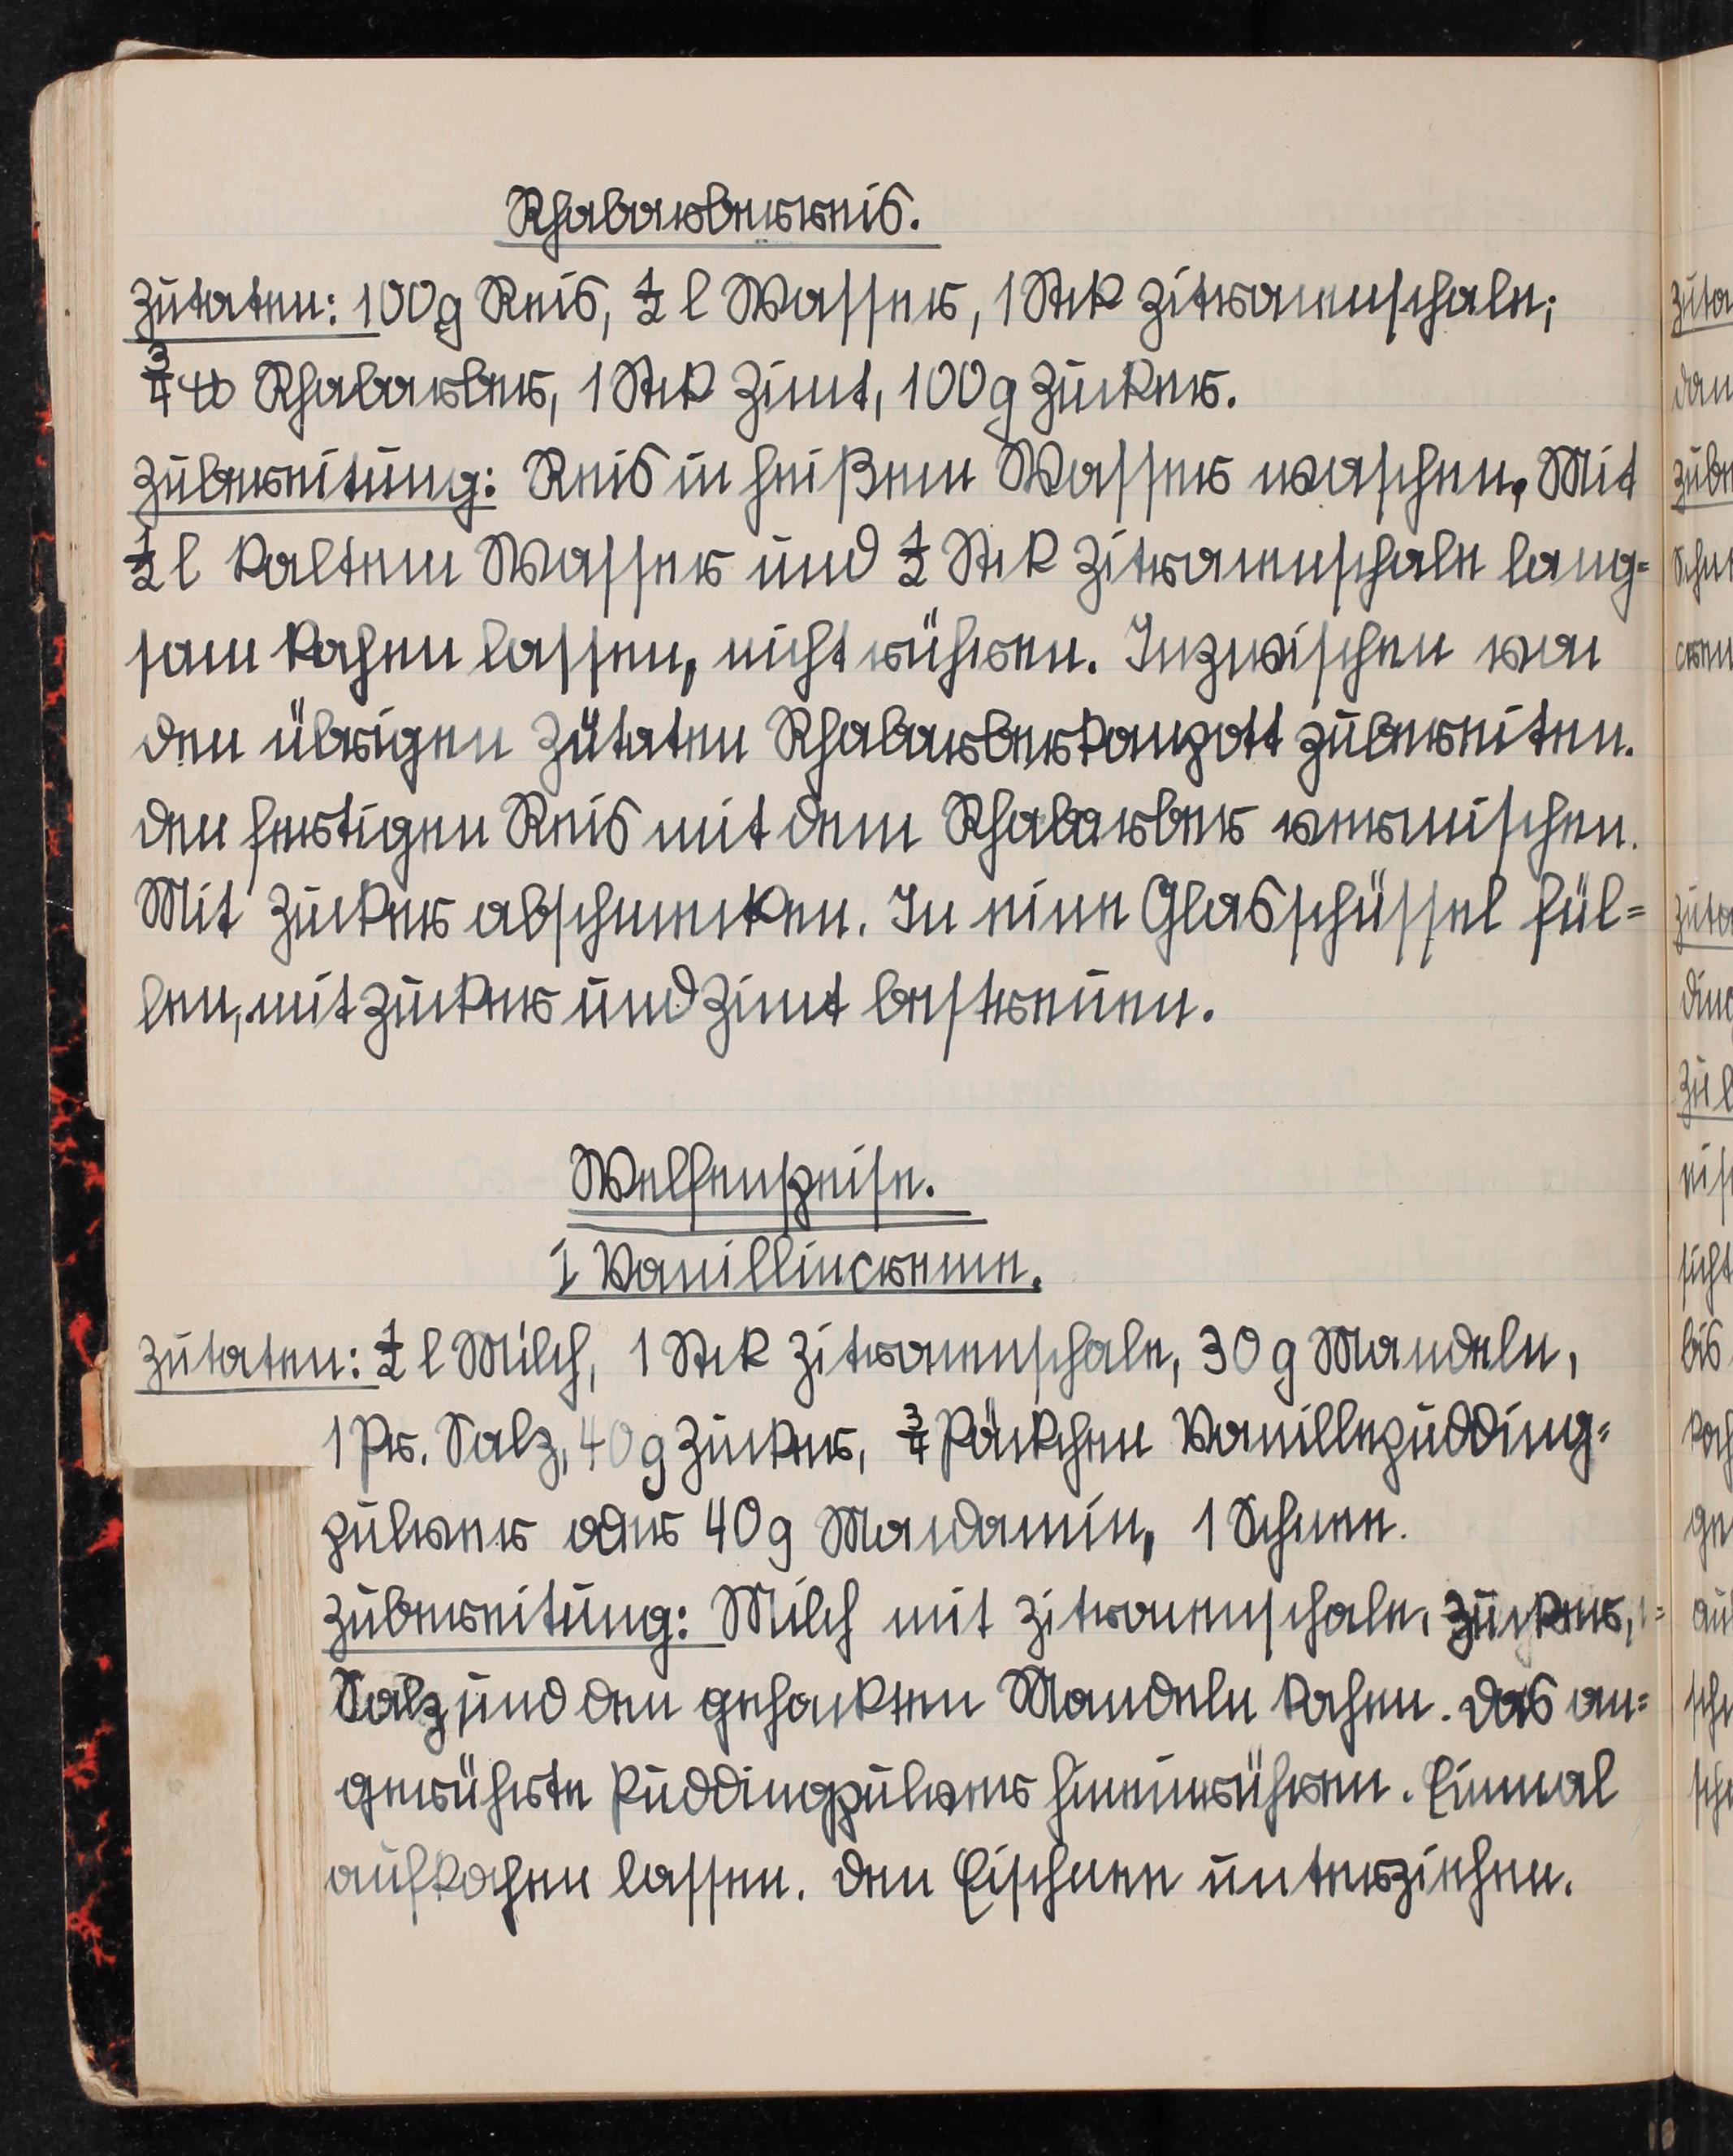 Rhabarberreis.
Zutaten: 100g Reis, ½ l Wasser, 1 Stck Zitronenschale;
¾ ℔ Rhabarber, 1 Stck Zimt, 100g Zucker.
Zubereitung: Reis in heißem Wasser waschen. Mit
½ l kaltem Wasser und ½ Stck Zitronenschale lang=
sam kochen lassen, nicht rühren. Inzwischen von
den übrigen Zutaten Rhabarberkompott zubereiten.
den fertigen Reis mit dem Rhabarber vermischen.
Mit Zucker abschmecken. In eine Glasschüssel fül=
len, mit Zucker und Zimt bestreuen.
Welfenspeise.
1 Vanillincreme.
Zutaten: ½ l Milch, 1 Stck Zitronenschale, 30 g Mandeln,
1 Pr. Salz, 40g Zucker, ¾ Päckchen Vanillepudding=
pulver oder 40g Mondamin, 1 Schnee.
Zubereitung: Milch mit Zitronenschale, Zucker,
Salz und den gehackten Mandeln kochen. das an=
gerührte Puddingpulver hineinrühren. Einmal
aufkochen lassen. den Eischnee unterziehen.